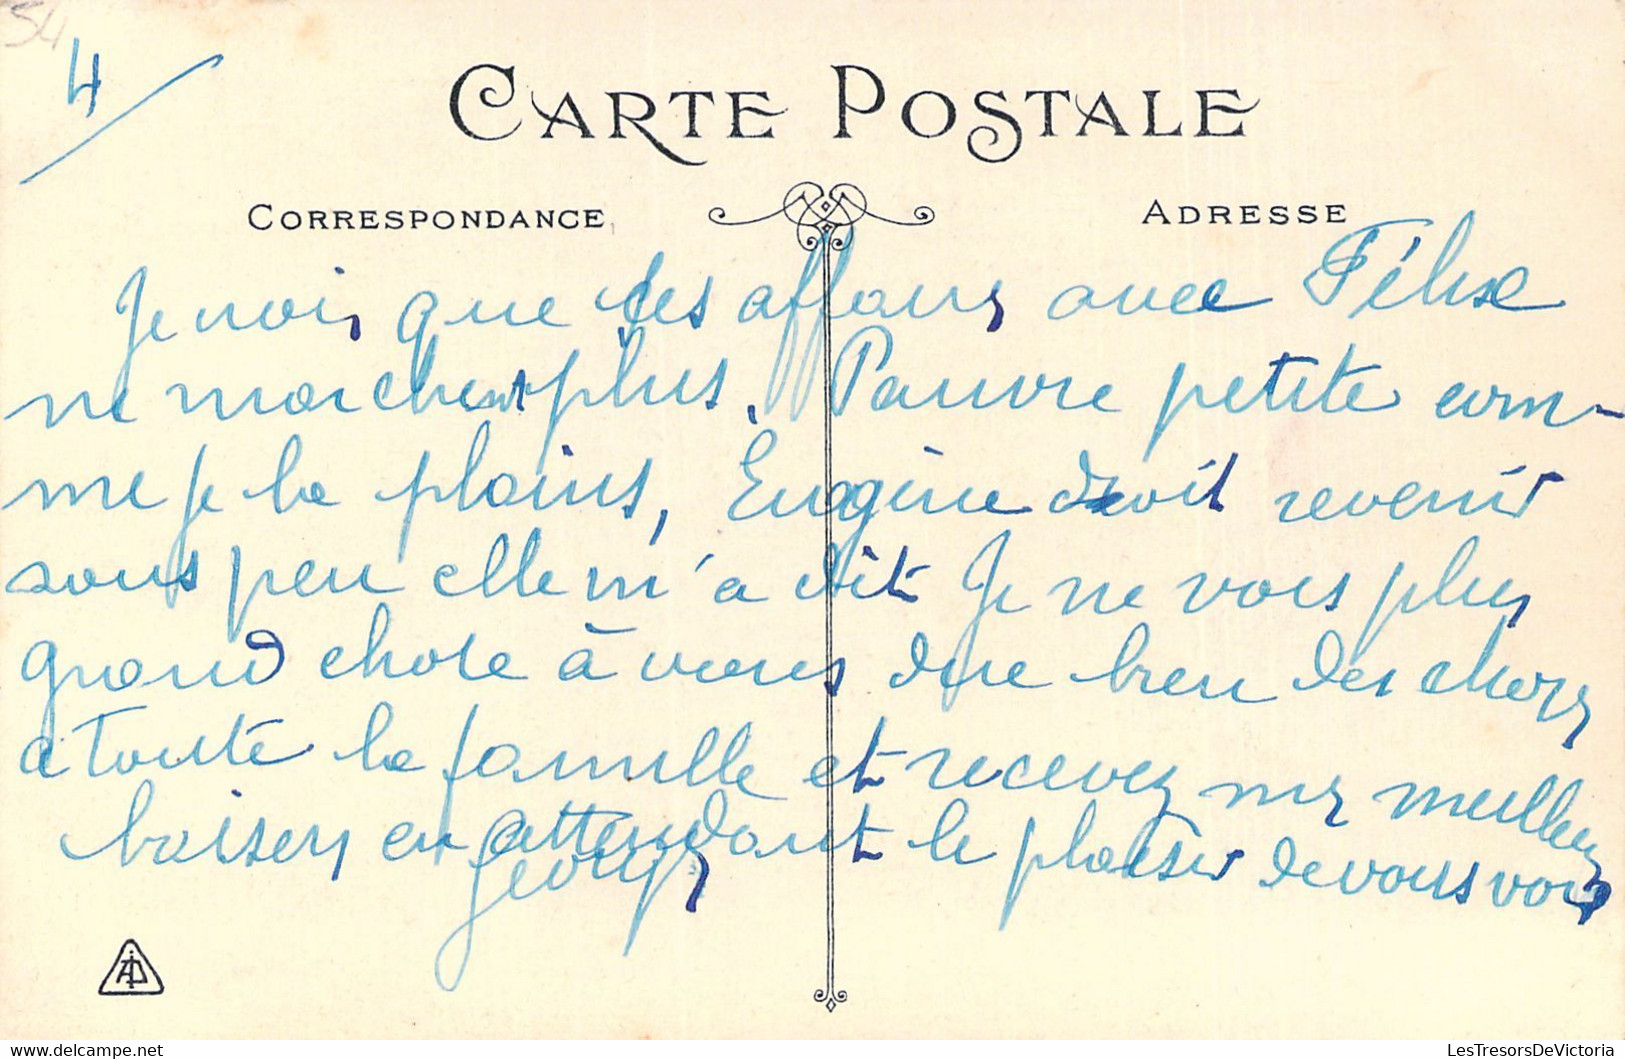 54
4
CARTE POSTALE
CORRESPONDANCE
ADRESSE
Je vois que les affaires avec Félise
ne marchent plus. Pauvre petite com-
me je la plains, Eugénie doit revenir
sous peu elle m'a dit Je ne vois plus
grand chose à vous dire bien des choses
a toute la famille et recevez mes meilleurs
baisers en attendant le plaisir de vous voir
Georges
AP
LesTresorsDeVictoria